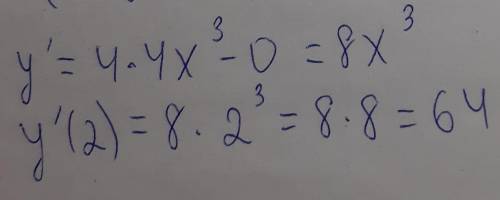 y' = 4·4x³ - 0 = 8x³
y'(2) = 8·2³ = 8·8 = 64